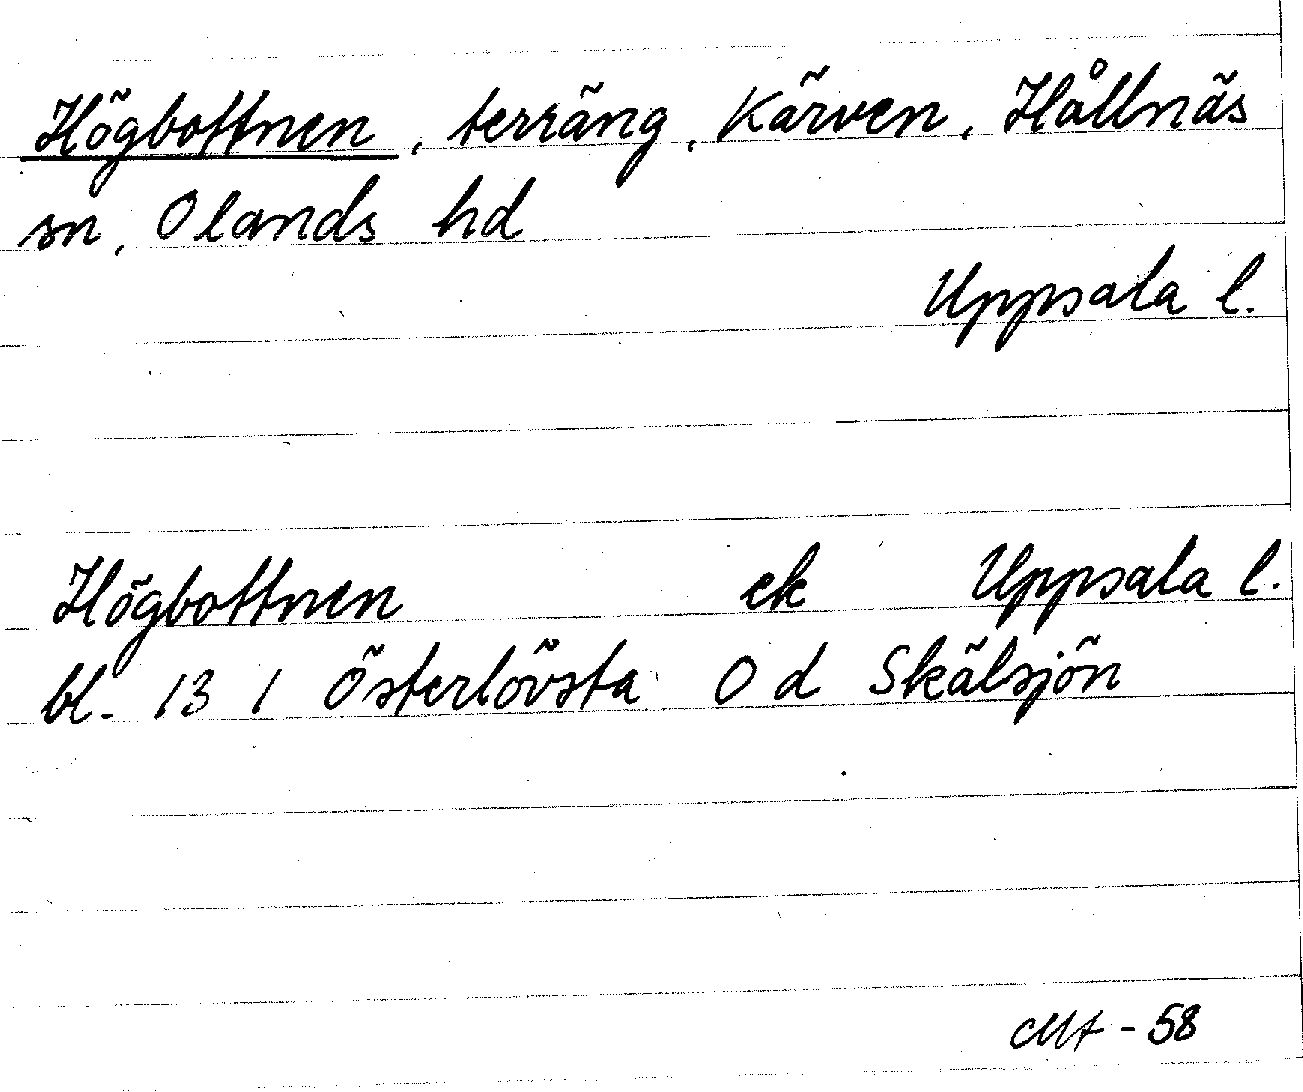 Högbottnen, terräng, Kärven, Hållnäs
sn, Olands hd
Uppsala l.
Högbottnen ek Uppsala l.
bl. 13 I Österlövsta O d Skälsjön
MA - 58